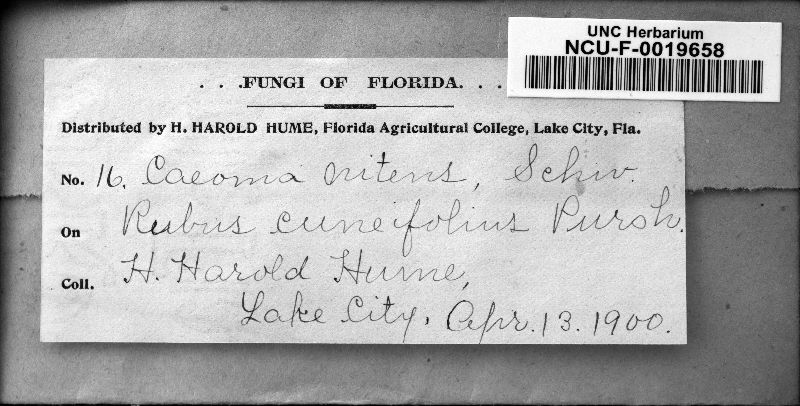 UNC Herbarium
NCU-F-0019658
. . .FUNGI OF FLORIDA. . .
Distributed by H. HAROLD HUME, Florida Agricultural College, Lake City, Fla.
No. 16. Caeoma nitens, Schw.
On Rubus cuneifolius Pursh.
Coll. H. Harold Hume,
Lake City, Apr. 13. 1900.